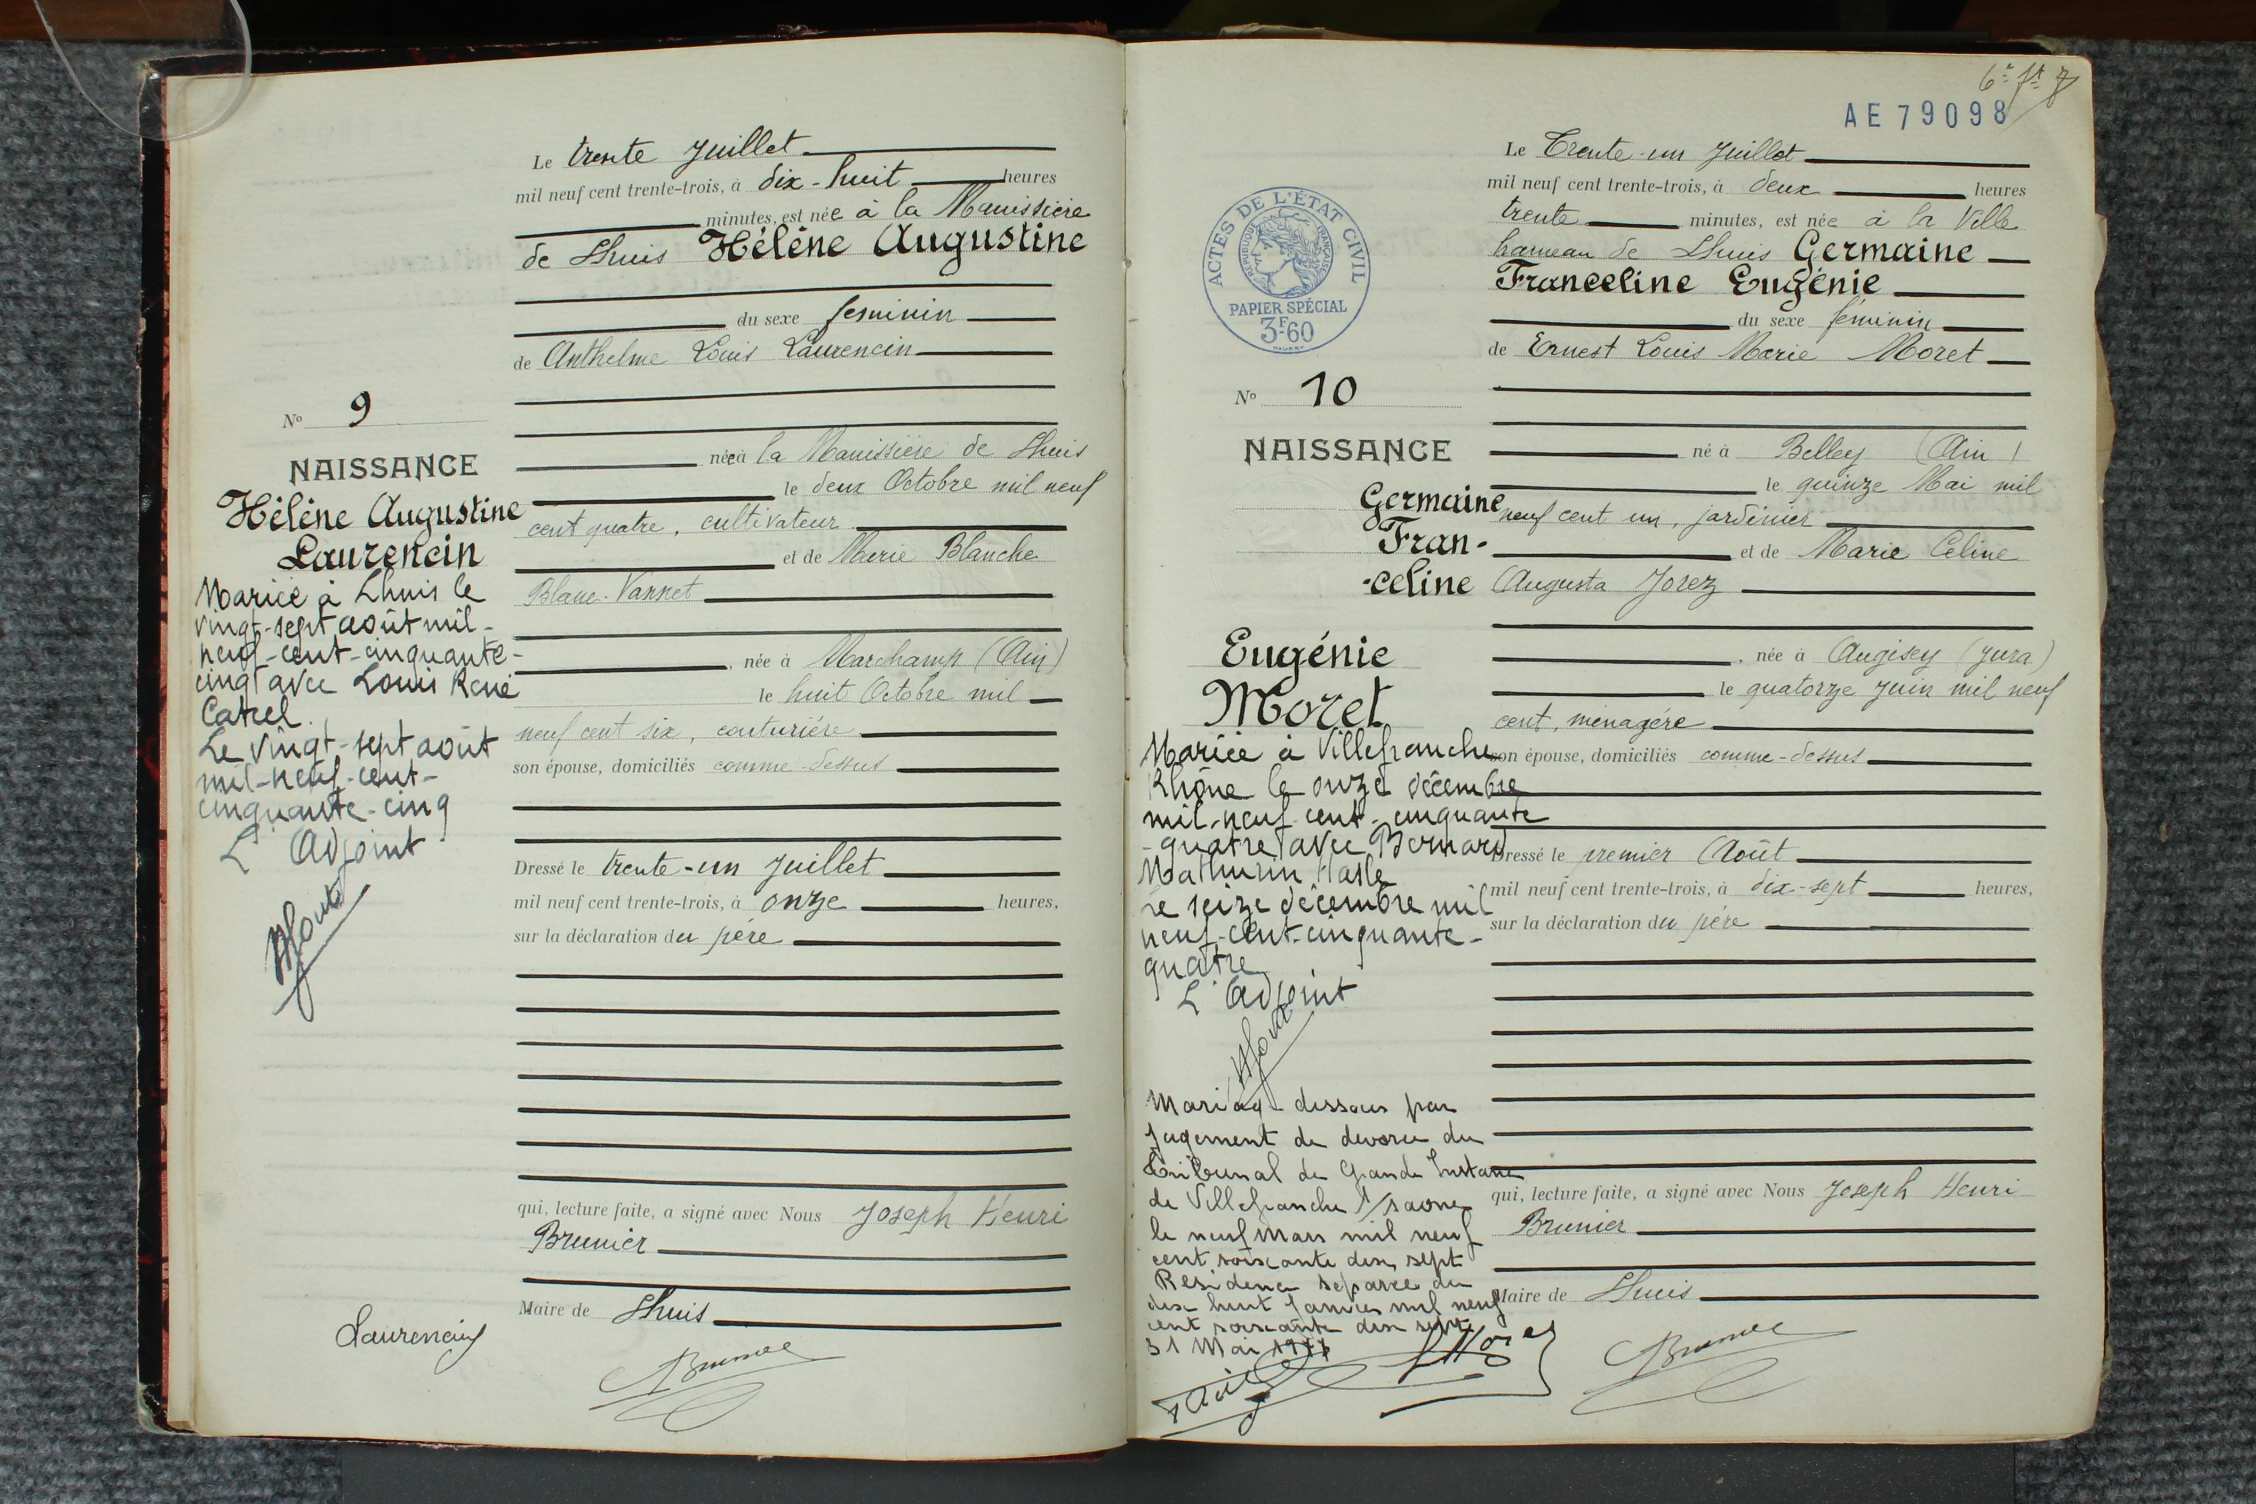 Le trente Juillet
mil neuf cent trente-trois, à dix-huit heures
minutes, est née à la Manissière
de Lhuis Hélène Augustine
du sexe féminin
de Anthelme Louis Laurencin
née à la Manissière de Lhuis
le deux Octobre mil neuf
cent quatre, cultivateur
et de Marie Blanche
Blanc-Vannet
née à Marchamp (Ain)
le huit Octobre mil
neuf cent six, couturière
son épouse, domiciliés comme-dessus
Dressé le trente-un Juillet
mil neuf cent trente-trois, à onze heures,
sur la déclaration du père
qui, lecture faite, a signé avec Nous Joseph Henri
Brunier
Maire de Lhuis
Laurencin
Brunier
No 9
NAISSANCE
Hélène Augustine
Laurencin
Mariée à Lhuis le
vingt-sept août mil-
neuf-cent-cinquante-
cinq avec Louis René
Catrel.
Le vingt-sept août
mil-neuf-cent-
cinquante-cinq
L'Adjoint
6e ft 7
AE 79098
ACTES DE L'ÉTAT CIVIL
RÉPUBLIQUE FRANÇAISE
PAPIER SPÉCIAL
3F60
Le Trente-un Juillet
mil neuf cent trente-trois, à deux heures
trente minutes, est née à la Ville
hameau de Lhuis Germaine
Franceline Eugénie
du sexe féminin
de Ernest Louis Marie Moret
né à Belley (Ain)
le quinze Mai mil
neuf cent un, jardinier
et de Marie Céline
Augusta Jorez
née à Augisey (Jura)
le quatorze Juin mil neuf
cent, ménagère
son épouse, domiciliés comme-dessus
Dressé le premier Août
mil neuf cent trente-trois, à dix-sept heures,
sur la déclaration du père
qui, lecture faite, a signé avec Nous Joseph Henri
Brunier
Maire de Lhuis
Brunier
No 10
NAISSANCE
Germaine
Fran-
-celine
Eugénie
Moret
Mariée à Villefranche
Rhône le onze décembre
mil-neuf-cent-cinquante
-quatre avec Bernard
Mathurin Hasle
Le seize décembre mil
neuf-cent-cinquante-
quatre
L'Adjoint
Mariage dissous par
jugement de divorce du
Tribunal de Grande Instance
de Villefranche s/saone
le neuf Mars mil neuf
cent soixante dix sept
Résidence séparée du
dix huit Janvier mil neuf
cent soixante dix sept
31 Mai 1977